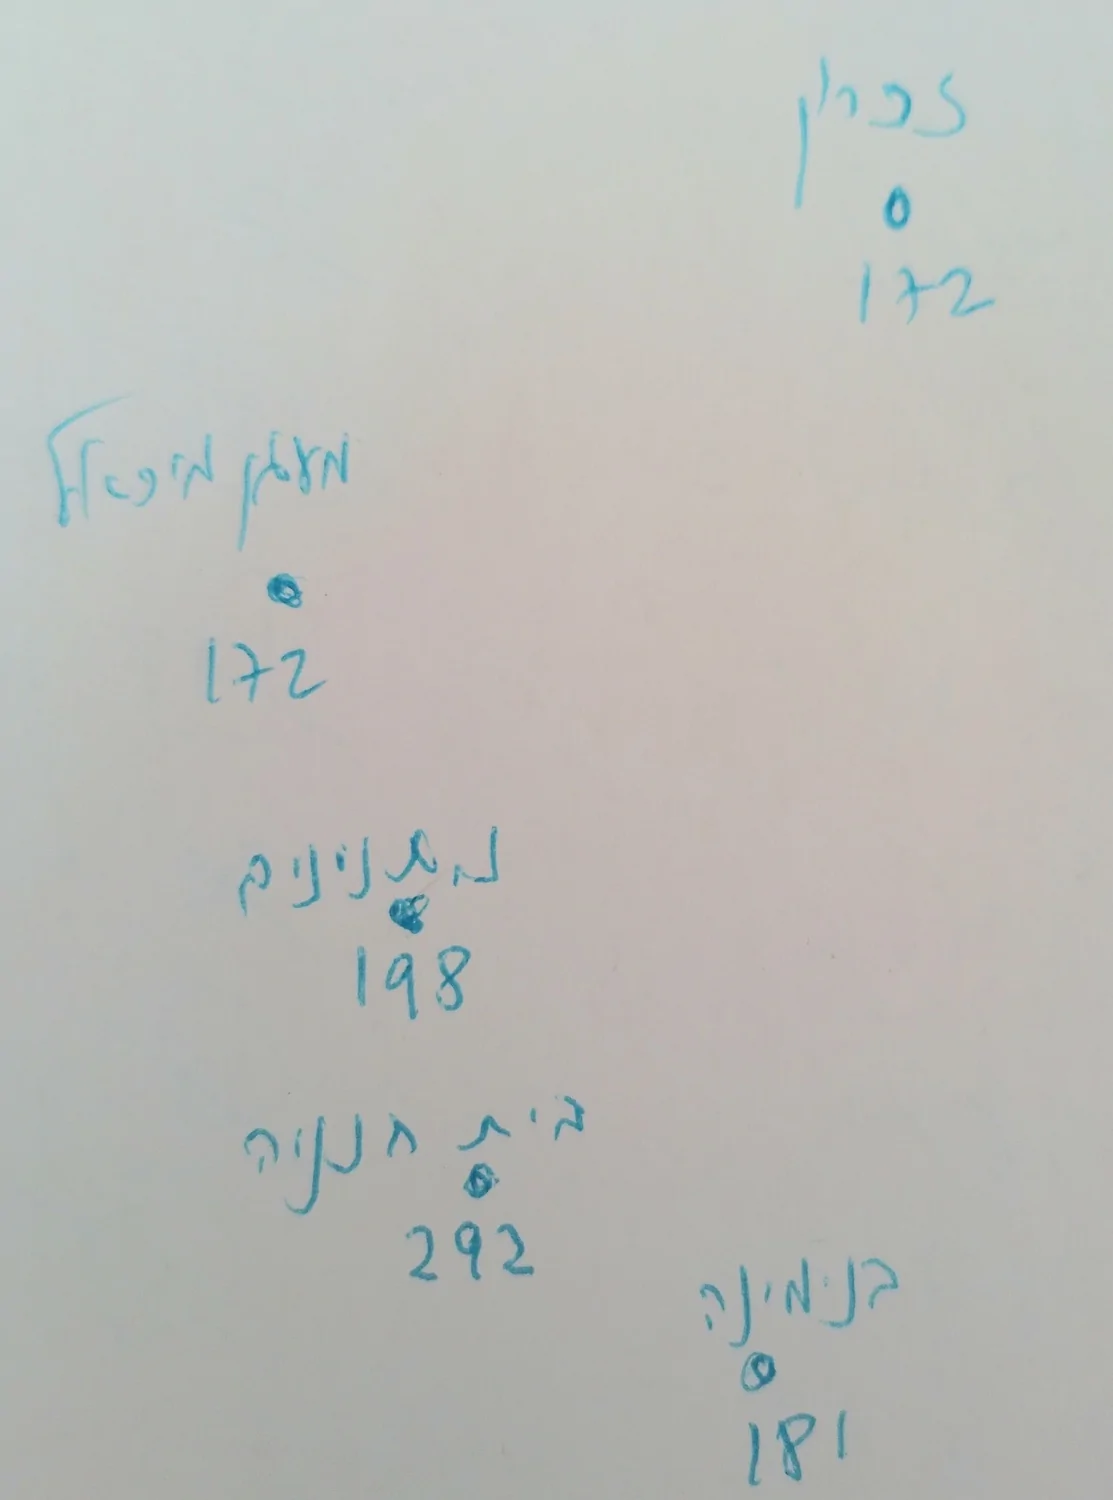 זכרון
172
מעגן מיכאל
172
נ. תנינים
198
בית חנניה
292
בנימינה
181